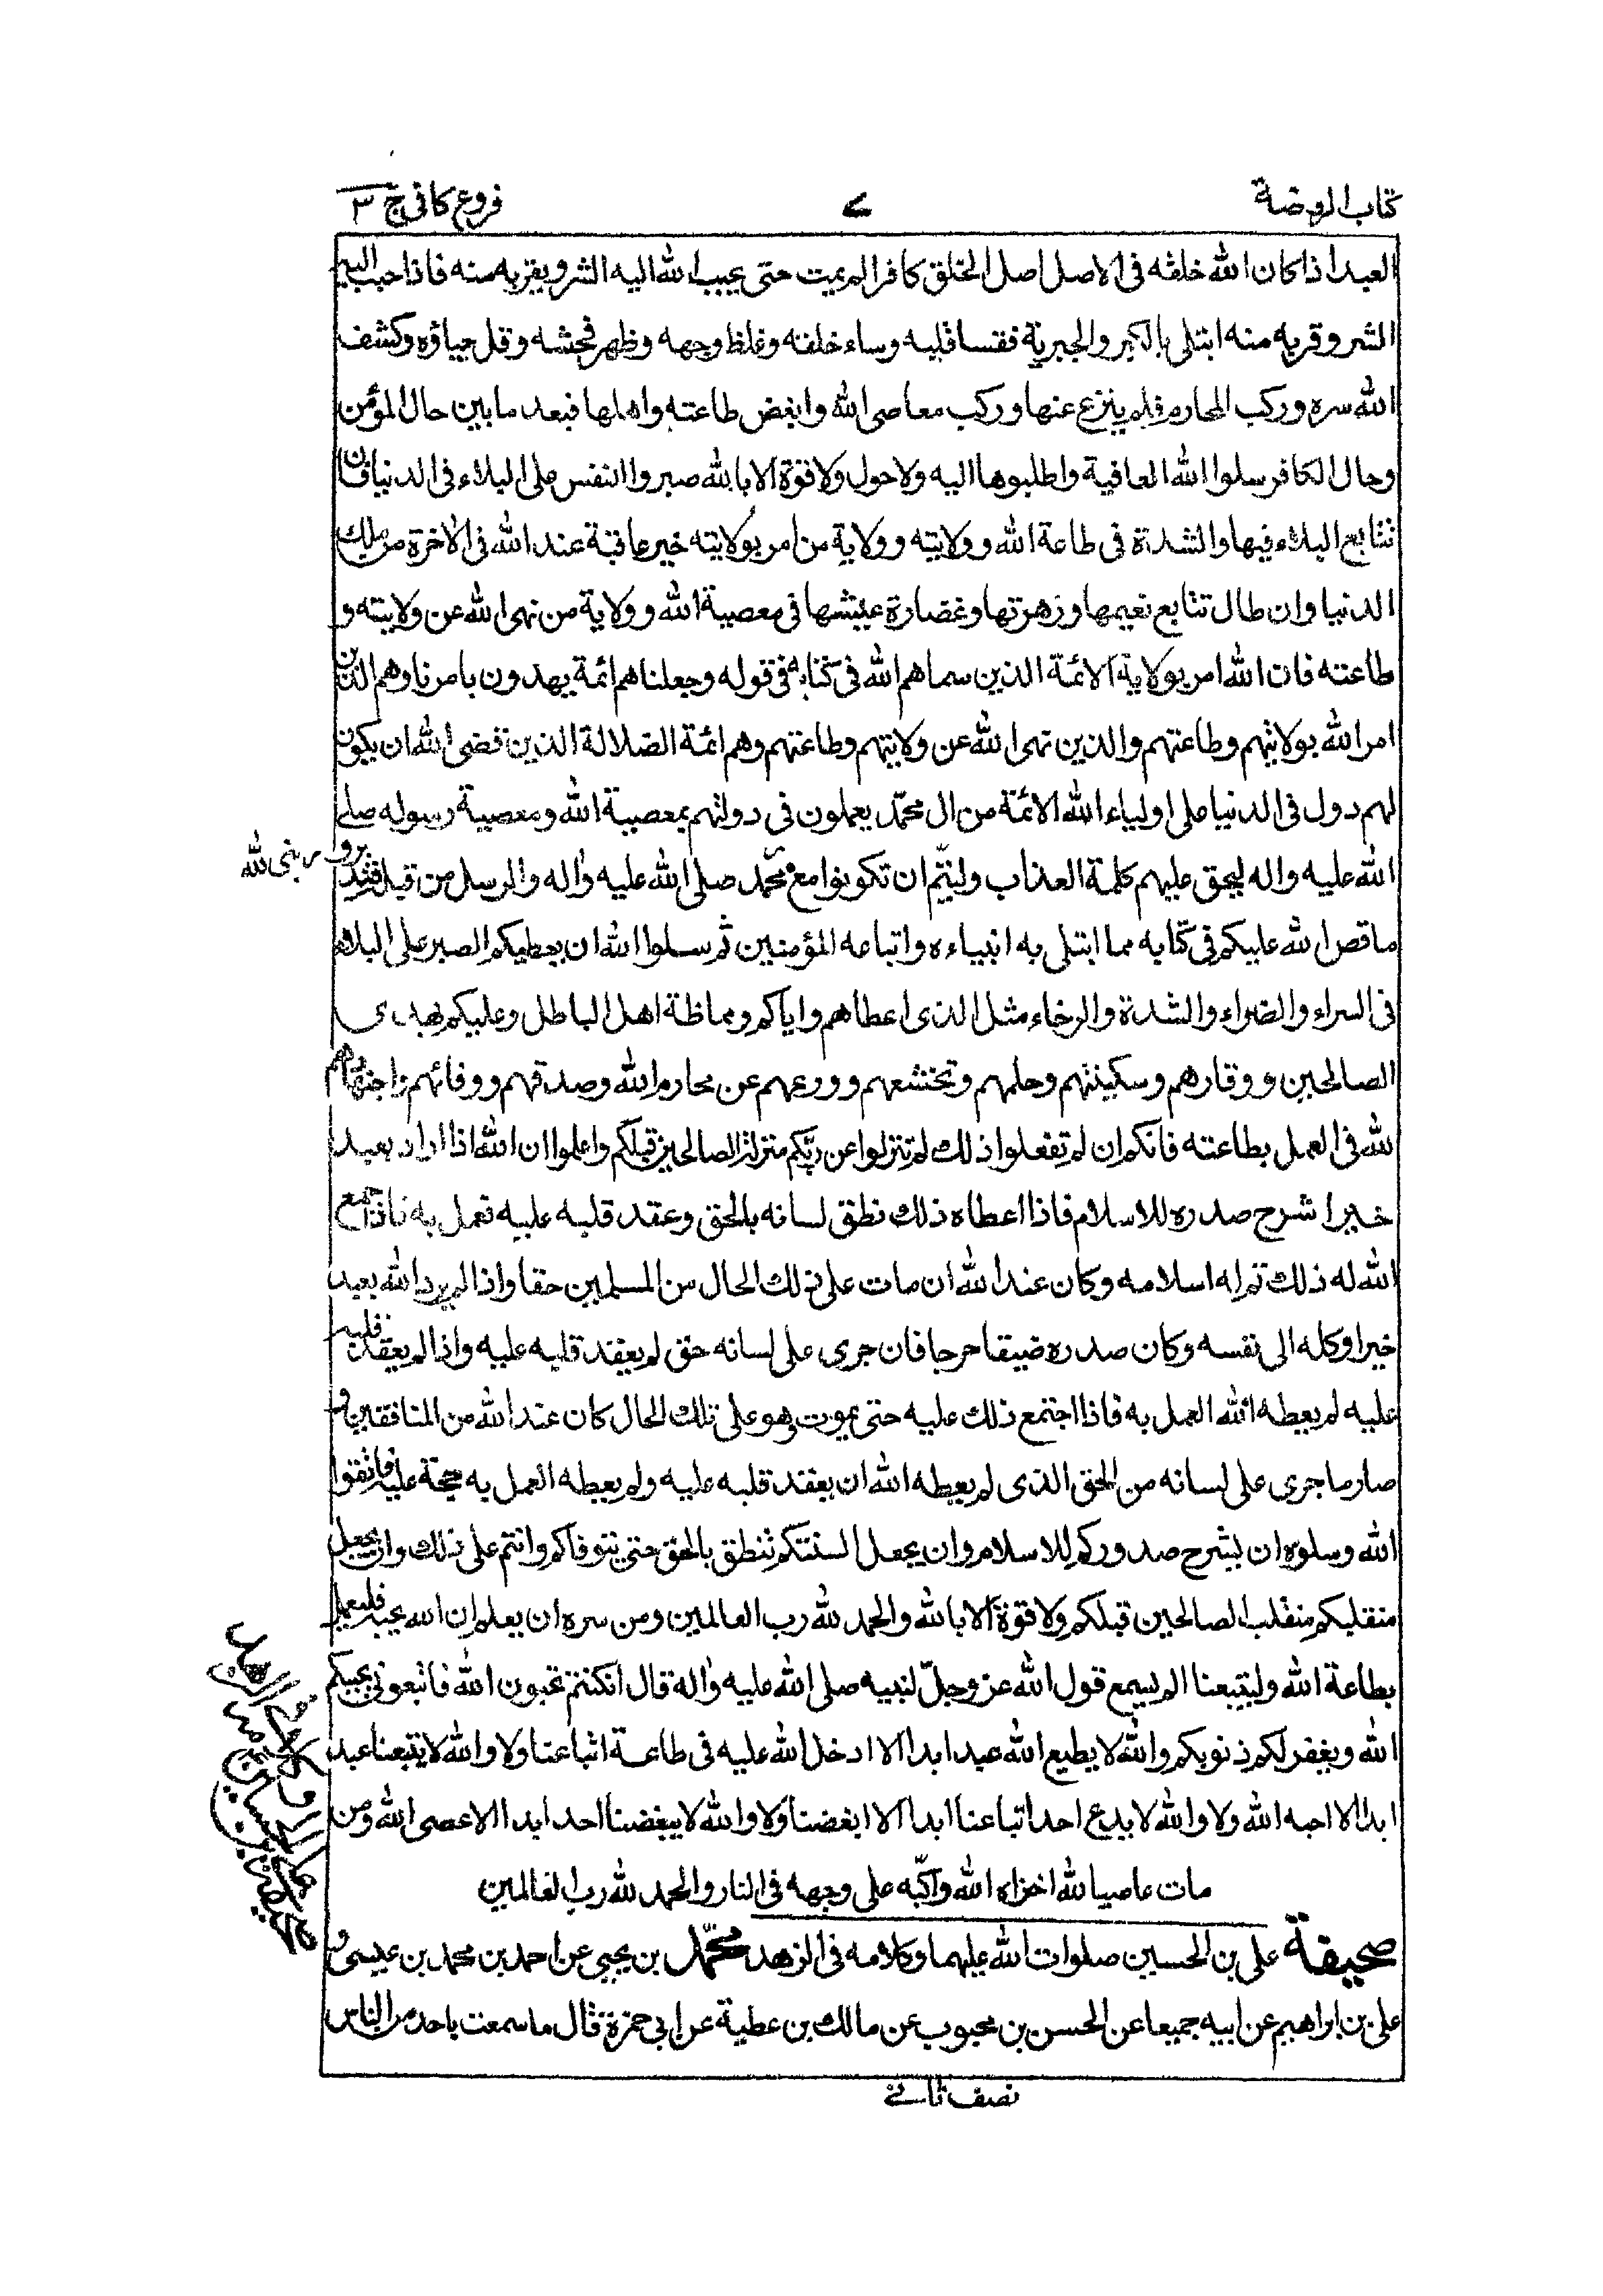 كتاب الروضة ٧ فروع كافى ج ٣
العبد اذا كان الله خلقه فى الاصل اصل الخلق كافرا لم يمت حتى يحبب الله اليه الشر ويقربه منه فاذا حبب اليه
الشر وقربه منه ابتلى بالكبر والجبرية فقسا قلبه وساء خلقه وغلظ وجهه وظهر فحشه وقل حياؤه وكشف
الله سره وركب المحارم فلم ينزع عنها وركب معاصى الله وابغض طاعته واهلها فبعد ما بين حال المؤمن
وحال الكافر سلوا الله العافية واطلبوها اليه ولا حول ولا قوة الا بالله صبروا النفس على البلاء فى الدنيا فان
تتابع البلاء فيها والشدة فى طاعة الله وولايته وولاية من امر بولايته خير عاقبة عند الله فى الاخرة من ملك
الدنيا وان طال تتابع نعيمها وزهرتها وغضارة عيشها فى معصية الله وولاية من نهى الله عن ولايته و
طاعته فان الله امر بولاية الائمة الذين سماهم الله فى كتابه فى قوله وجعلناهم ائمة يهدون بامرنا وهم الذين
امر الله بولايتهم وطاعتهم والذين نهى الله عن ولايتهم وطاعتهم وهم ائمة الضلالة الذين قضى الله ان يكون
لهم دول فى الدنيا على اولياء الله الائمة من ال محمّد يعملون فى دولتهم بمعصية الله ومعصية رسوله صلى
الله عليه واله ليحق عليهم كلمة العذاب وليتّم ان تكونوا مع محمّد صلى الله عليه واله والرسل من قبله فتدبروا
ما قص الله عليكم فى كتابه مما ابتلى به انبياءه واتباعه المؤمنين ثم سلوا الله ان يعطيكم الصبر على البلاء
فى السراء والضراء والشدة والرخاء مثل الذى اعطاهم واياكم ومماظة اهل الباطل وعليكم بهدى
الصالحين ووقارهم وسكينتهم وحلمهم وتخشعهم وورعهم عن محارم الله وصدقهم ووفائهم واجتهادهم
لله فى العمل بطاعته فانكم ان لم تفعلوا ذلك لم تنزلوا عن ربّكم منزلة الصالحين قبلكم واعلموا ان الله اذا اراد بعبد
خيرا شرح صدره للاسلام فاذا اعطاه ذلك نطق لسانه بالحق وعقد قلبه عليه فعمل به فاذا جمع
الله له ذلك تم له اسلامه وكان عند الله ان مات على ذلك الحال من المسلمين حقا واذا لم يرد الله بعبد
خيرا وكله الى نفسه وكان صدره ضيقا حرجا فان جرى على لسانه حق لم يعقد قلبه عليه واذا لم يعقد قلبه
عليه لم يعطه الله العمل به فاذا اجتمع ذلك عليه حتى يموت وهو على تلك الحال كان عند الله من المنافقين و
صار ما جرى على لسانه من الحق الذى لم يعطه الله ان يعقد قلبه عليه ولم يعطه العمل به حجة عليه فاتقوا
الله وسلوه ان يشرح صدوركم للاسلام وان يجعل السنتكم تنطق بالحق حتى يتوفاكم وانتم على ذلك وان يجعل
منقلبكم منقلب الصالحين قبلكم ولا قوة الا بالله والحمد لله رب العالمين ومن سره ان يعلم ان الله يحبه فليعمل
بطاعة الله وليتبعنا الم يسمع قول الله عز وجلّ لنبيه صلى الله عليه واله قال ان كنتم تحبون الله فاتبعونى يحببكم
الله ويغفر لكم ذنوبكم والله لا يطيع الله عبد ابدا الا ادخل الله عليه فى طاعة اتباعنا ولا والله لا يتبعنا عبد
ابدا الا احبه الله ولا والله لا يدع احد اتباعنا ابدا الا ابغضنا ولا والله لا يبغضنا احد ابدا الا عصى الله ومن
مات عاصيا لله اخزاه الله واكبّه على وجهه فى النار والحمد لله رب العالمين
صحيفة على بن الحسين صلوات الله عليهما وكلامه فى الزهد محمّد بن يحيى عن احمد بن محمد بن عيسى و
على بن ابراهيم عن ابيه جميعا عن الحسن بن محبوب عن مالك بن عطية عن ابى حمزة قال ما سمعت باحد من الناس
نصف ثانے